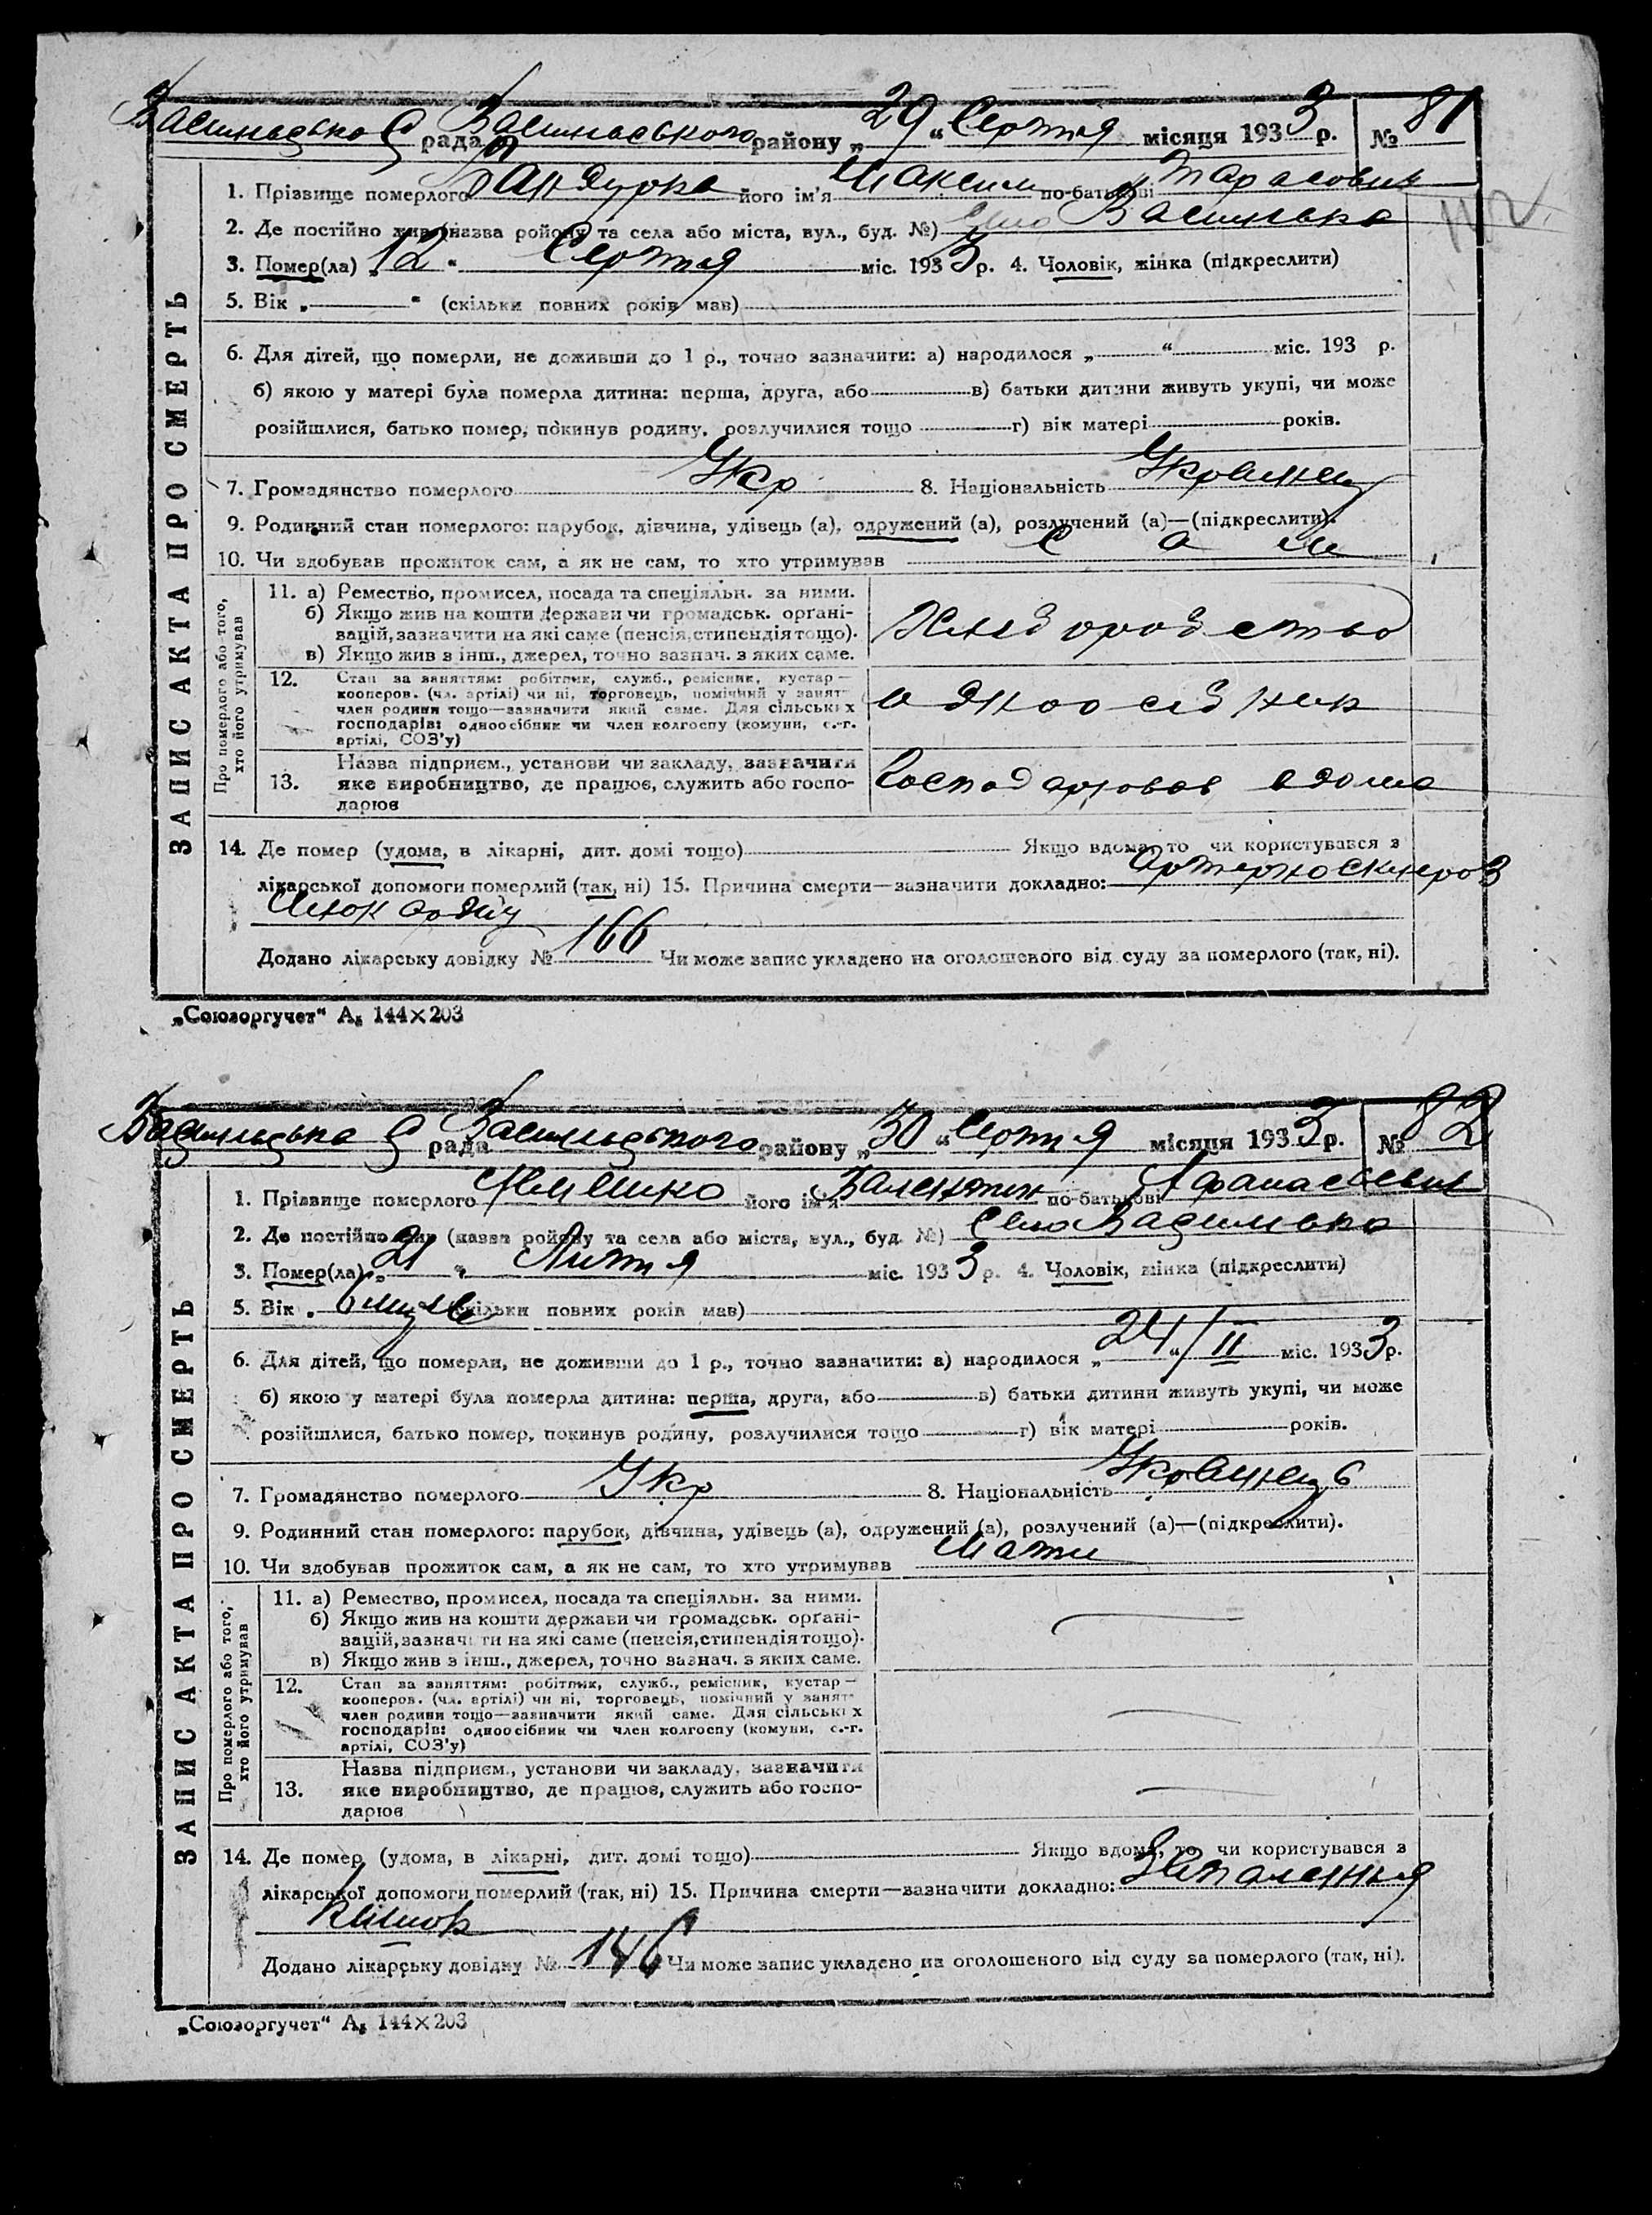 Васильська С рада Васильського району „29" Серпня місяця 1933 р. № 81
1. Прізвище померлого Бандурка його ім'я Максим по-батькові Тарасович
2. Де постійно жив (назва району та села або міста, вул., буд. №) село Василька
3. Помер(ла) „12" Серпня міс. 1933 р. 4. Чоловік, жінка (підкреслити)
5. Вік „ " (скільки повних років мав)
6. Для дітей, що померли, не доживши до 1 р., точно зазначити: а) народилося „ " міс. 193 р.
б) якою у матері була померла дитина: перша, друга, або в) батьки дитини живуть укупі, чи може
розійшлися, батько помер, покинув родину, розлучилися тощо г) вік матері років.
7. Громадянство померлого Укр 8. Національність Украинец
9. Родинний стан померлого: парубок, дівчина, удівець (а), одружений (а), розлучений (а)—(підкреслити).
10. Чи здобував прожиток сам, а як не сам, то хто утримував сам
ЗАПИС АКТА ПРО СМЕРТЬ
Про померлого або того, хто його утримував
11. а) Ремество, промисел, посада та спеціяльн. за ними.
б) Якщо жив на кошти держави чи громадськ. орґані-
зацій, зазначити на які саме (пенсія, стипендія тощо).
в) Якщо жив з інш., джерел, точно зазнач. з яких саме.
Хлебородство
12. Стан за заняттям: робітник, служб., ремісник, кустар—
кооперов. (чл. артілі) чи ні, торговець, помічний у занят-
член родини тощо—зазначити який саме. Для сільських
господарів: одноосібник чи член колгоспу (комуни, с.-г.
артілі, СОЗ'у)
одноосібник
13. Назва підприєм., установи чи закладу, зазначити
яке виробництво, де працює, служить або госпо-
дарює
Господарював вдома
14. Де помер (удома, в лікарні, дит. домі тощо) Якщо вдома, то чи користувався з
лікарської допомоги померлий (так, ні) 15. Причина смерти—зазначити докладно: Артериосклероз
Миокардиу
Додано лікарську довідку № 166 Чи може запис укладено на оголошеного від суду за померлого (так, ні).
„Союзоргучет" А₅ 144×203
Васильцька С рада Васильцького району „30" Серпня місяця 1933 р. № 82
1. Прізвище померлого його ім'я Валентин по-батькові Афанасович
2. Де постійно жив (назва району та села або міста, вул., буд. №) Село Василька
3. Помер(ла) „21" Липня міс. 1933 р. 4. Чоловік, жінка (підкреслити)
5. Вік (скільки повних років мав)
6. Для дітей, що померли, не доживши до 1 р., точно зазначити: а) народилося „24"/II міс. 1933 р.
б) якою у матері була померла дитина: перша, друга, або в) батьки дитини живуть укупі, чи може
розійшлися, батько помер, покинув родину, розлучилися тощо г) вік матері років.
7. Громадянство померлого Укр 8. Національність Украинець
9. Родинний стан померлого: парубок, дівчина, удівець (а), одружений (а), розлучений (а)—(підкреслити).
10. Чи здобував прожиток сам, а як не сам, то хто утримував Мати
ЗАПИС АКТА ПРО СМЕРТЬ
Про померлого або того, хто його утримував
11. а) Ремество, промисел, посада та спеціяльн. за ними.
б) Якщо жив на кошти держави чи громадськ. орґані-
зацій, зазначити на які саме (пенсія, стипендія тощо).
в) Якщо жив з інш., джерел, точно зазнач. з яких саме.
12. Стан за заняттям: робітник, служб., ремісник, кустар—
кооперов. (чл. артілі) чи ні, торговець, помічний у занят-
член родини тощо—зазначити який саме. Для сільських
господарів: одноосібник чи член колгоспу (комуни, с.-г.
артілі, СОЗ'у)
13. Назва підприєм., установи чи закладу, зазначити
яке виробництво, де працює, служить або госпо-
дарює
14. Де помер (удома, в лікарні, дит. домі тощо) Якщо вдома, то чи користувався з
лікарської допомоги померлий (так, ні) 15. Причина смерти—зазначити докладно: Запалення
кишок
Додано лікарську довідку № 146 Чи може запис укладено на оголошеного від суду за померлого (так, ні).
„Союзоргучет" А₅ 144×203